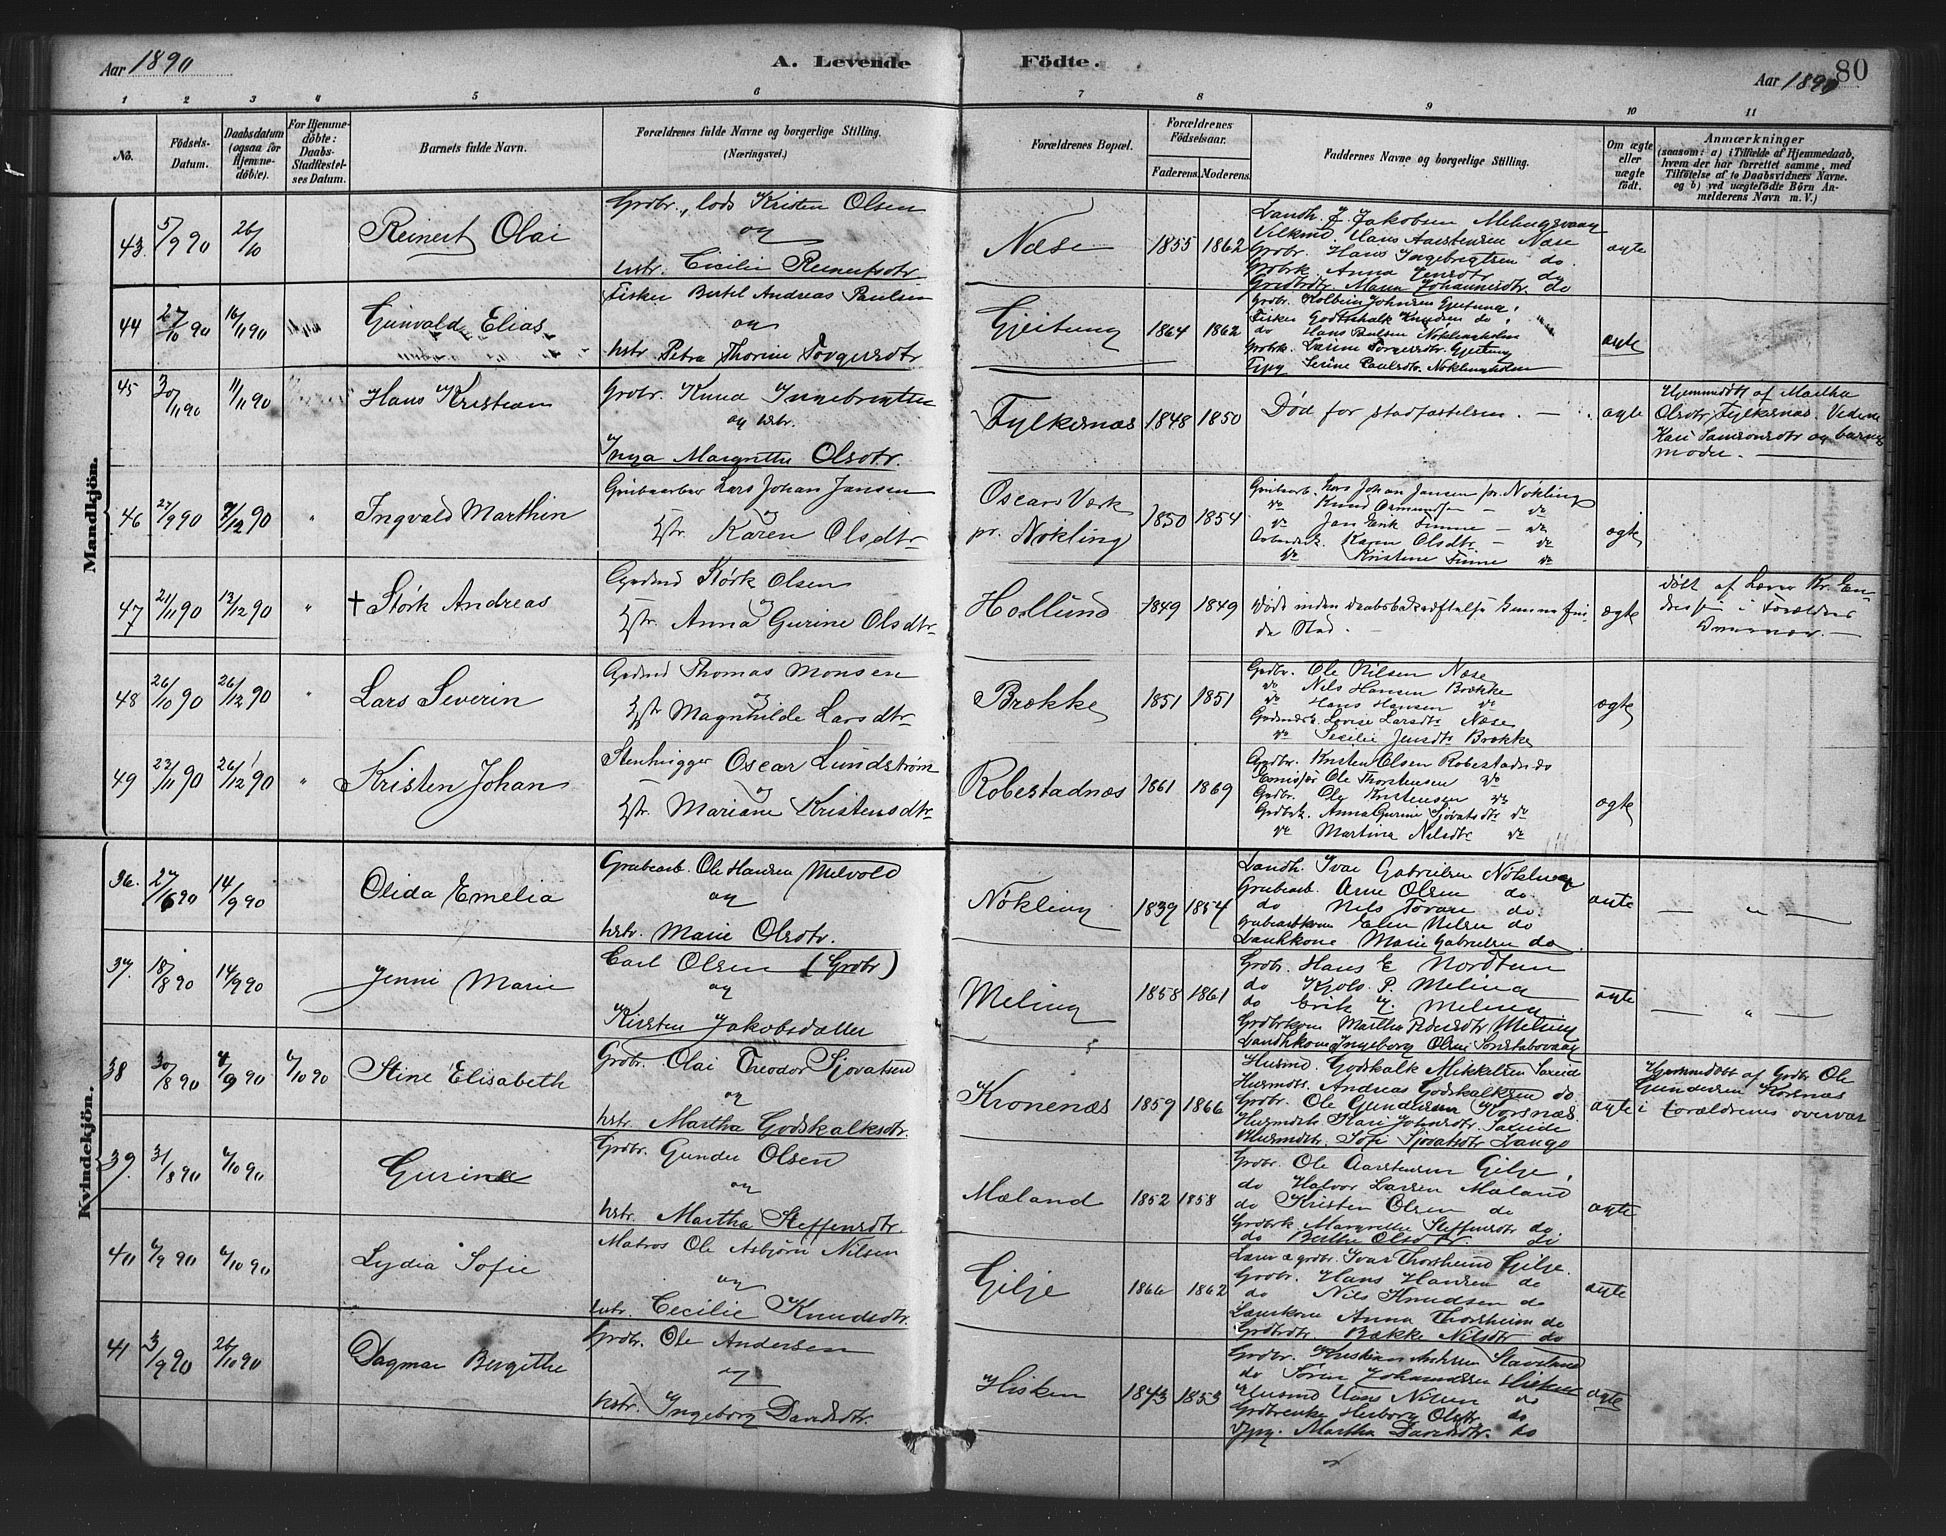 Aar 1890
A. Levende Födte.
80
Aar 1890
1 2 3 4 5 6 7 8 9 10 11
No.
Födsels-Datum.
Daabsdatum (ogsaa for Hjemmedöbte).
For Hjemmedöbte: Daabs-Stadfæstelses Datum.
Barnets fulde Navn.
Forældrenes fulde Navne og borgerlige Stilling. (Næringsvei.)
Forældrenes Bopæl.
Forældrenes Födselsaar.
Faderens. Moderens.
Faddernes Navne og borgerlige Stilling.
Om ægte eller uægte födt.
Anmærkninger (saasom: a) i Tilfælde af Hjemmedaab, hvem der har forrettet samme, med Tilföielse af to Daabsvidners Navne. og b) ved uægtefödte Börn Anmelderens Navn m. V.)
Mandkjön.
43. 5/9 90 26/10 Reinert Olai
Grdbr., lods Kristen Olsen
og
hstr. Cicilie Reinertsdtr.
Næse 1855 1862
Landh. J. Jakobsen Melingsvaag
Hans Aarstensen Næse
Grdbr. Hans Ingebrigtsen do.
Grdbrk. Anna Jensdtr do
Grdbrdtr. Maria Johannesdtr. do
ægte
44 27/10 90 16/11 90 Gunvald Elias
Fisker Bertel Andreas Paulsen
og
hstr. Petra Thorine Torgersdtr
Gjeitung 1864 1862
Grdbr. Kolbein Johnsen Gjeitung
Fisker Godtskalk Knudsen do
do Hans Paulsen Nøklingholm
Grdbrk. Larine Torgersdtr. Gjeitung
Pige Serine Paulsdtr. Nøklingholm
ægte
45 30/11 90 11/11 90 Hans Kristian
Grdbr. Knud Ingebrigtsen
og hstr.
Inga Margrethe Olsdtr.
Fylkesnæs 1848 1850
Død før stadfæstelsen. —
ægte
Hjemmedøbt af Martha
Olsdtr Fylkesnæs. Vidne
Kari Samsonsdtr og barnets
moder. —
46 27/9 90 7/12 90 " Ingvald Marthin
Grubearber Lars Johan Jansen
og
Hstr. Karen Olsdtr
Oscars Værk
pr. Nøkling 1850 1854
Grubearb. Lars Johan Jansen pr. Nøkling
do Knud Ormundsen — do
do Jan Erik Finne — do
Arberdsk. Karen Olsdtr. — do
do Kristine Finne do
ægte
47 21/11 90 13/12 90 " † Størk Andreas
Grdmd Størk Olsen
og
Hstr. Anna Gurine Olsdtr
Hollund 1849 1849
Døde inden Daabsbekræftelse kunne finde Sted. —
ægte
døbt af Lærer Kr. Endresen i Forældres
Overvær. —
48 26/10 90 26/12 90 " Lars Severin
Grdmd Thomas Monsen
og
Hstr Magnhilde Larsdtr
Brække 1851 1851
Grdbr. Ole Nilsen Næse
do Nils Hansen Brække
do Hans Hansen do
Grdmdsk. Lovise Larsdtr Næse
do Secilie Jensdtr Brække
ægte
49 22/11 90 26/12 90 " Kristen Johan
Stenhugger Oscar Lundstrøm
og
Hstr Mariane Kristensdtr
Robestadnæs 1861 1869
Grdbr. Kristen Olsen Robestadnæs
Ole Thorstensen do
Grdbr. Ole Kristensen do
Grdbrk. Anna Gurine Sjovatsdtr do
do Martina Nilsdtr do
ægte
Kvindekjön.
36. 27/6 90 14/9 90 Olida Emelia
Grubearb. Ole Hansen Melvold
og
hstr. Marie Olsdtr.
Nökling 1839 1854
Landh. Ivar Gabrielsen Nökling
Grubearb. Arne Olsen do
do Nils Tovare do.
Grubearbkone Elen Nilsen do
Landhkone Marie Gabrielsen do.
ægte — " —
37. 18/8 90 14/9 90 Jenni Marie
Carl Olsen (Grdbr)
og
Kirsten Jakobsdatter
Meling 1858 1861
Grdbr. Hans E. Nordtun
do P. Meling
do Erik E. Meling
Grdbrkone Martha Pedersdtr Meling
Landhkone Ingeborg Olsen
ægte — " —
38 30/8 90 4/9 90 6/10 90 Stine Elisabeth
Grdbr. Olai Theodor Sjovatsen
og
hstr. Martha Godskalksdtr.
Kronenæs 1859 1866
Husmd. Godskalk Mikkelsen Saxeide
Husmdss. Andreas Godskalksen do
Grdbr. Ole Gundersen Korsnæs
Husmdsk Kari Johnsdtr Saxeide
Husmdtr. Sofi Sjovatsdtr Lange
ægte
Hjemmedøbt af Grdbr Ole
Gundersen Korsnæs
i forældrenes overvær
39. 31/8 90 6/10 90 Gurine
Grdbr. Gunder Olsen
og
hstr. Martha Steffensdtr.
Mæland 1852 1858
Grdbr. Ole Aarstensen Gilje,
do Halvor Larsen Mæland
do Kristen Olsen do
Grdbrk. Margrethe Steffensdtr do
do Berthe Olsdtr.
ægte
40 6/9 90 6/10 90 Lydia Sofie
Matros Ole Asbjørn Nilsen
og
hstr. Cecilie Knudsdtr.
Gilje 1866 1862
Lærer & grdbr. Ivar Thorsheim Gilje.
Grdbr. Hans Hansen do
do Nils Knudsen do
Lærerkone Anna Thorsheim do
Grdbrdtr. Bække Nilsdtr do
ægte
41 3/9 90 26/10 90 Dagmar Bergithe
Grdbr. Ole Andersen
og
hstr. Ingeborg Davidsdtr.
Hisken 1843 1853
Grdbr. Kristian Andersen Stavland
do Sören Johannessen Hisken
Husmd Hans Nilsen do
Grdbrenke Herborg Olsdtr. do
Pige. Martha Davidsdtr. do
ægte